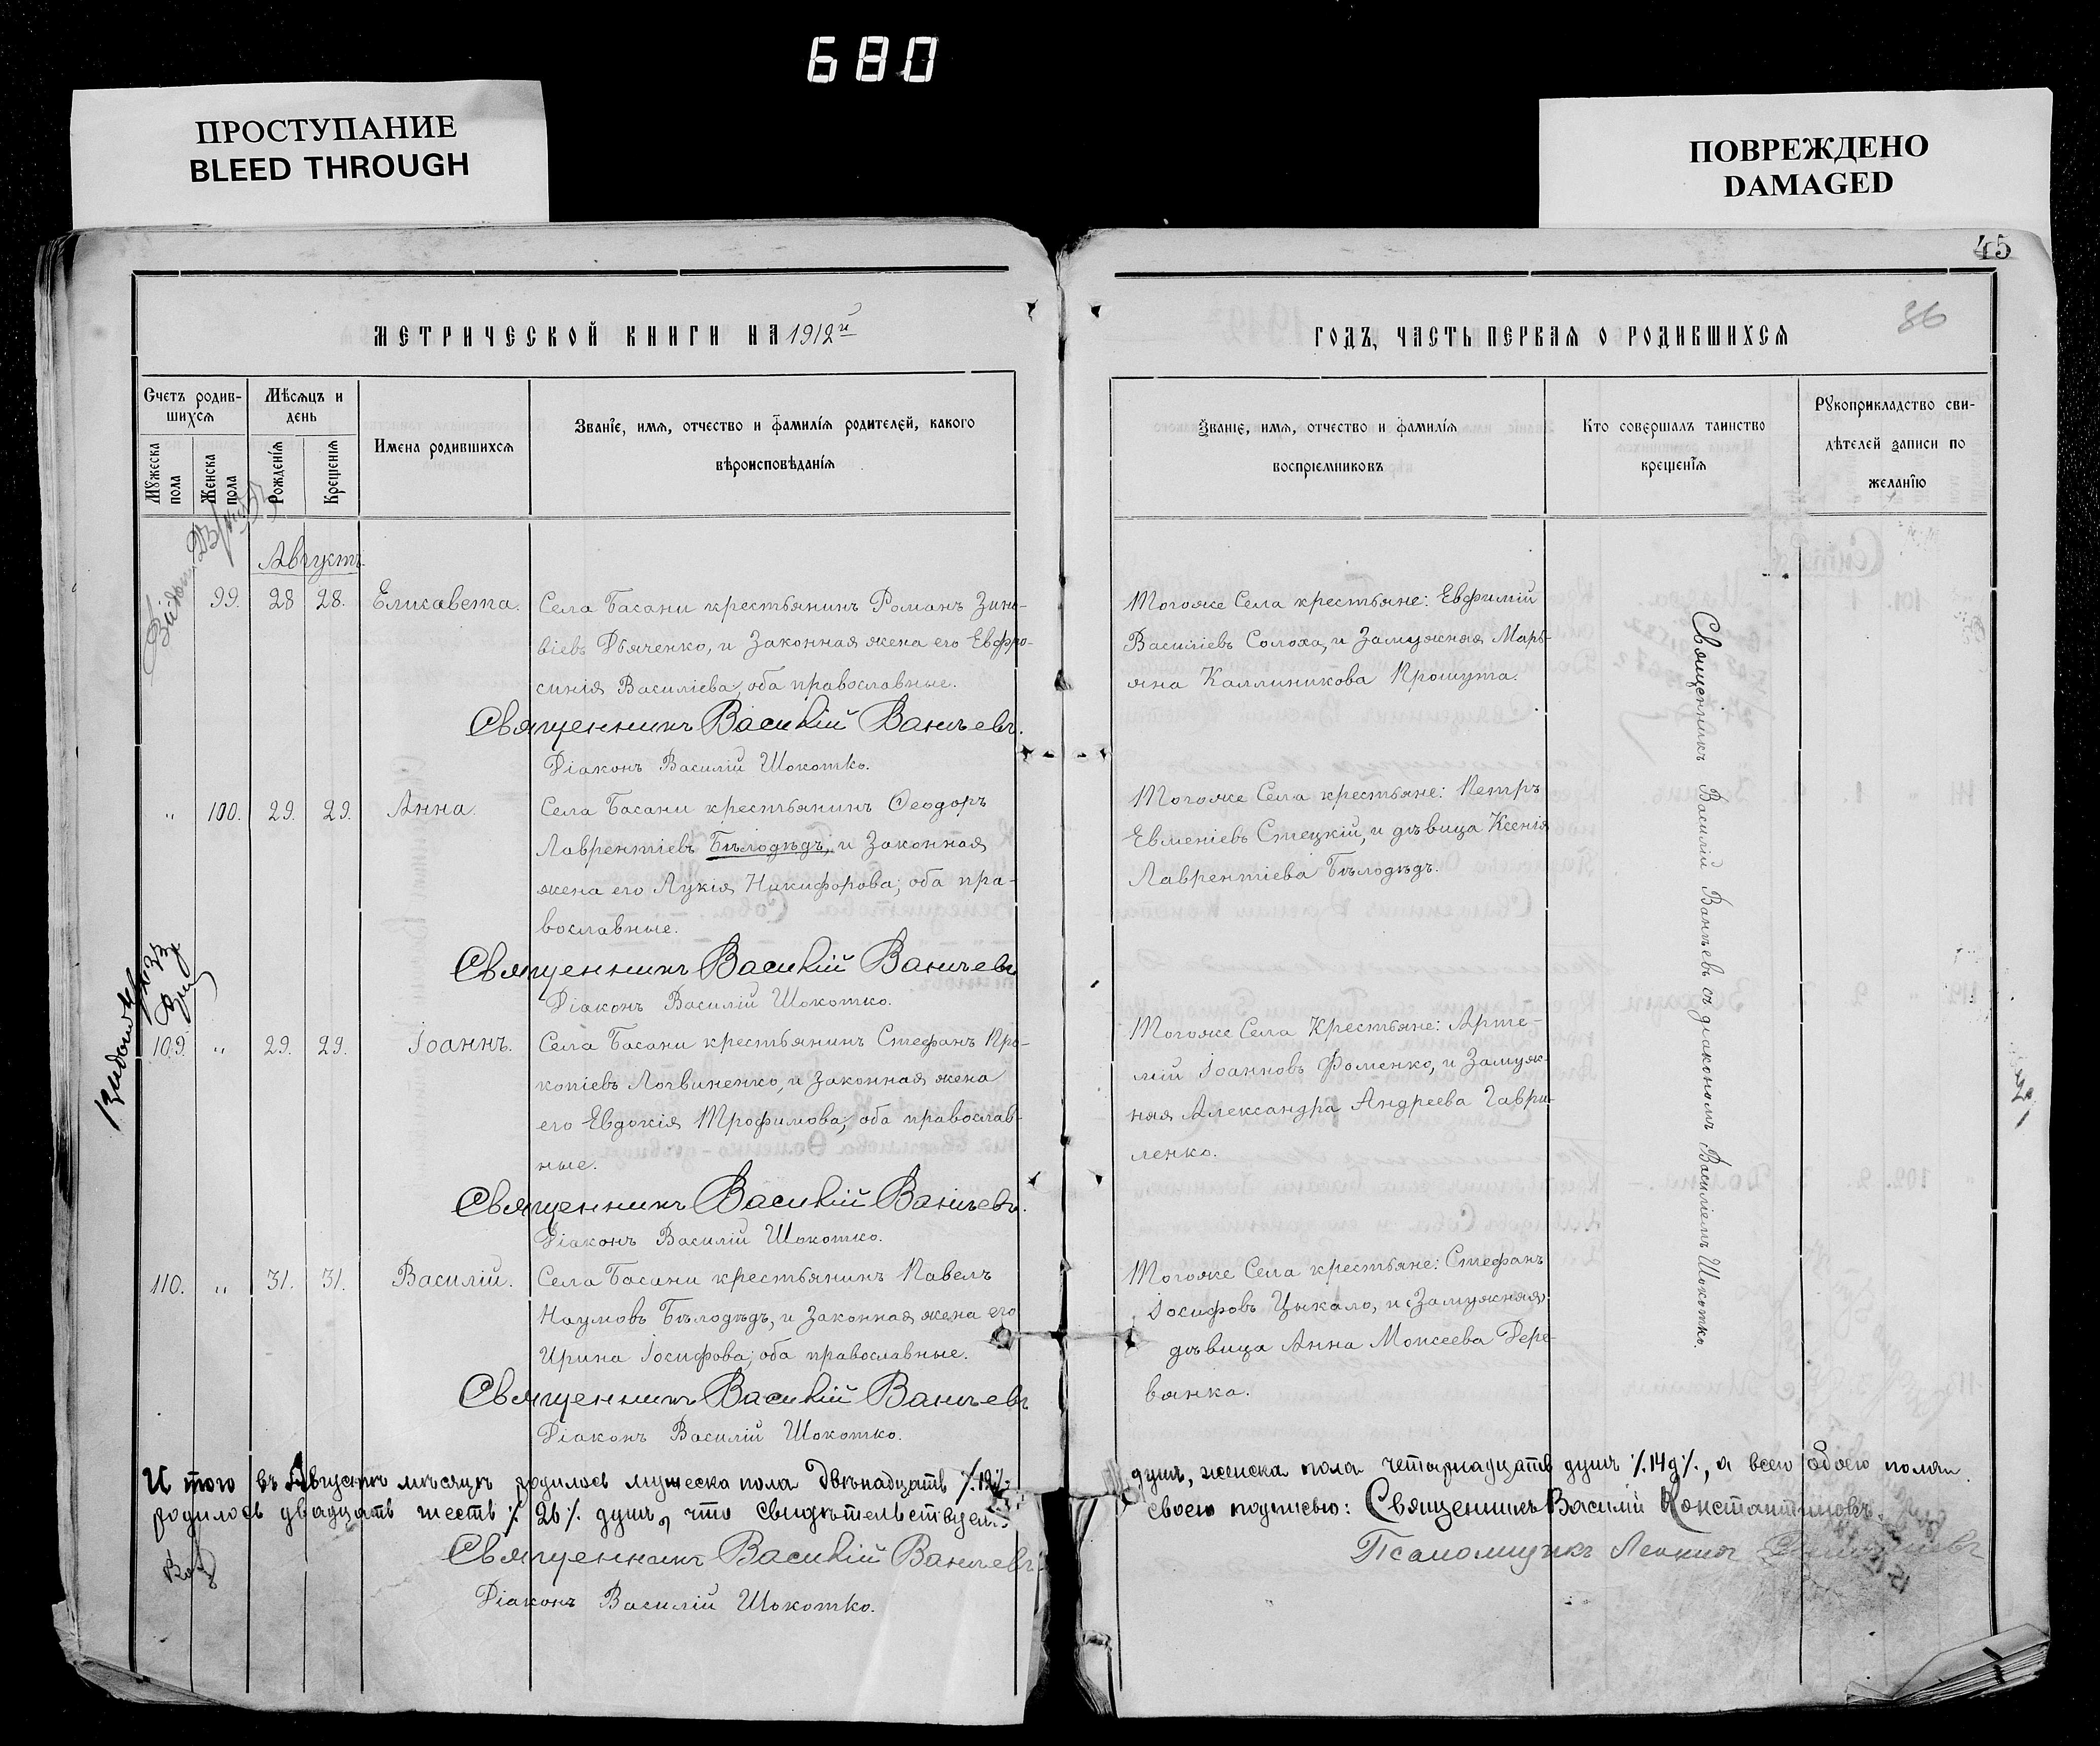 680
ПРОСТУПАНИЕ
BLEED THROUGH
ПОВРЕЖДЕНО
DAMAGED
45
36
МЕТРИЧЕСКОЙ КНИГИ НА 1912й
ГОДЪ, ЧАСТЬ ПЕРВАЯ О РОДИВШИХСЯ
Счетъ родив-
шихся
Мужеска пола
Женска пола
Мѣсяцъ и
день
Рожденїя
Крещенїя
Имена родившихся
Званїе, имя, отчество и фамилїя родителей, какого
вѣроисповѣданїя
Званїе, имя, отчество и фамилїя
воспрїемниковъ
Кто совершалъ таинство
крещенїя
Рукоприкладство сви-
дѣтелей записи по
желанїю
Августъ.
99. 28 28. Елисавета. Села Басани крестьянинъ Романъ Зино-
віевъ Дьяченко, и Законная жена его Евфро-
синія Василіева, оба православные.
Священникъ Василій Ваничевъ.
Діаконъ Василій Шокотко.
Тогоже Села крестьяне: Евфимій
Василіевъ Солоха, и Замужняя Марь-
яна Каллиникова Прошута.
" 100. 29. 29. Анна. Села Басани крестьянинъ Ѳеодоръ
Лаврентіевъ Бѣлодѣдъ, и Законная
жена его Лукія Никифорова; оба пра-
вославные.
Священникъ Василій Ваничевъ
Діаконъ Василій Шокотко.
Тогоже Села крестьяне: Петръ
Евменіевъ Стецкій, и дѣвица Ксенія
Лаврентіева Бѣлодѣдъ.
109. " 29. 29. Іоаннъ. Села Басани крестьянинъ Стефанъ Про-
копіевъ Логвиненко, и Законная жена
его Евдокія Трофимова; оба православ-
ные.
Священникъ Василій Ваничевъ.
Діаконъ Василій Шокотко.
Тогоже Села Крестьяне: Арте-
мій Іоанновъ Фоменко, и Замуж-
няя Александра Андреева Гаври-
ленко.
110. " 31. 31. Василій. Села Басани крестьянинъ Павелъ
Наумовъ Бѣлодѣдъ, и Законная жена его
Ирина Іосифова; оба православные.
Священникъ Василій Ваничевъ
Діаконъ Василій Шокотко.
Тогоже Села крестьяне: Стефанъ
Іосифовъ Цыкало, и Замужняя
дѣвица Анна Моисеева Дере-
вянко.
Священникъ Василій Ваничевъ съ діакономъ Василіемъ Шокотко.
И того въ Августѣ мѣсяцѣ родилось мужеска пола двѣнадцать /.12/.
душъ, женска пола четырнадцать душъ /.14д/., а всего обоего пола
родилось двадцать шесть /.26/. душъ, что свидѣтельствуемъ
своею подписью: Священникъ Василій Константиновъ.
Священникъ Василій Ваничевъ
Діаконъ Василій Шокотко.
Псаломщикъ